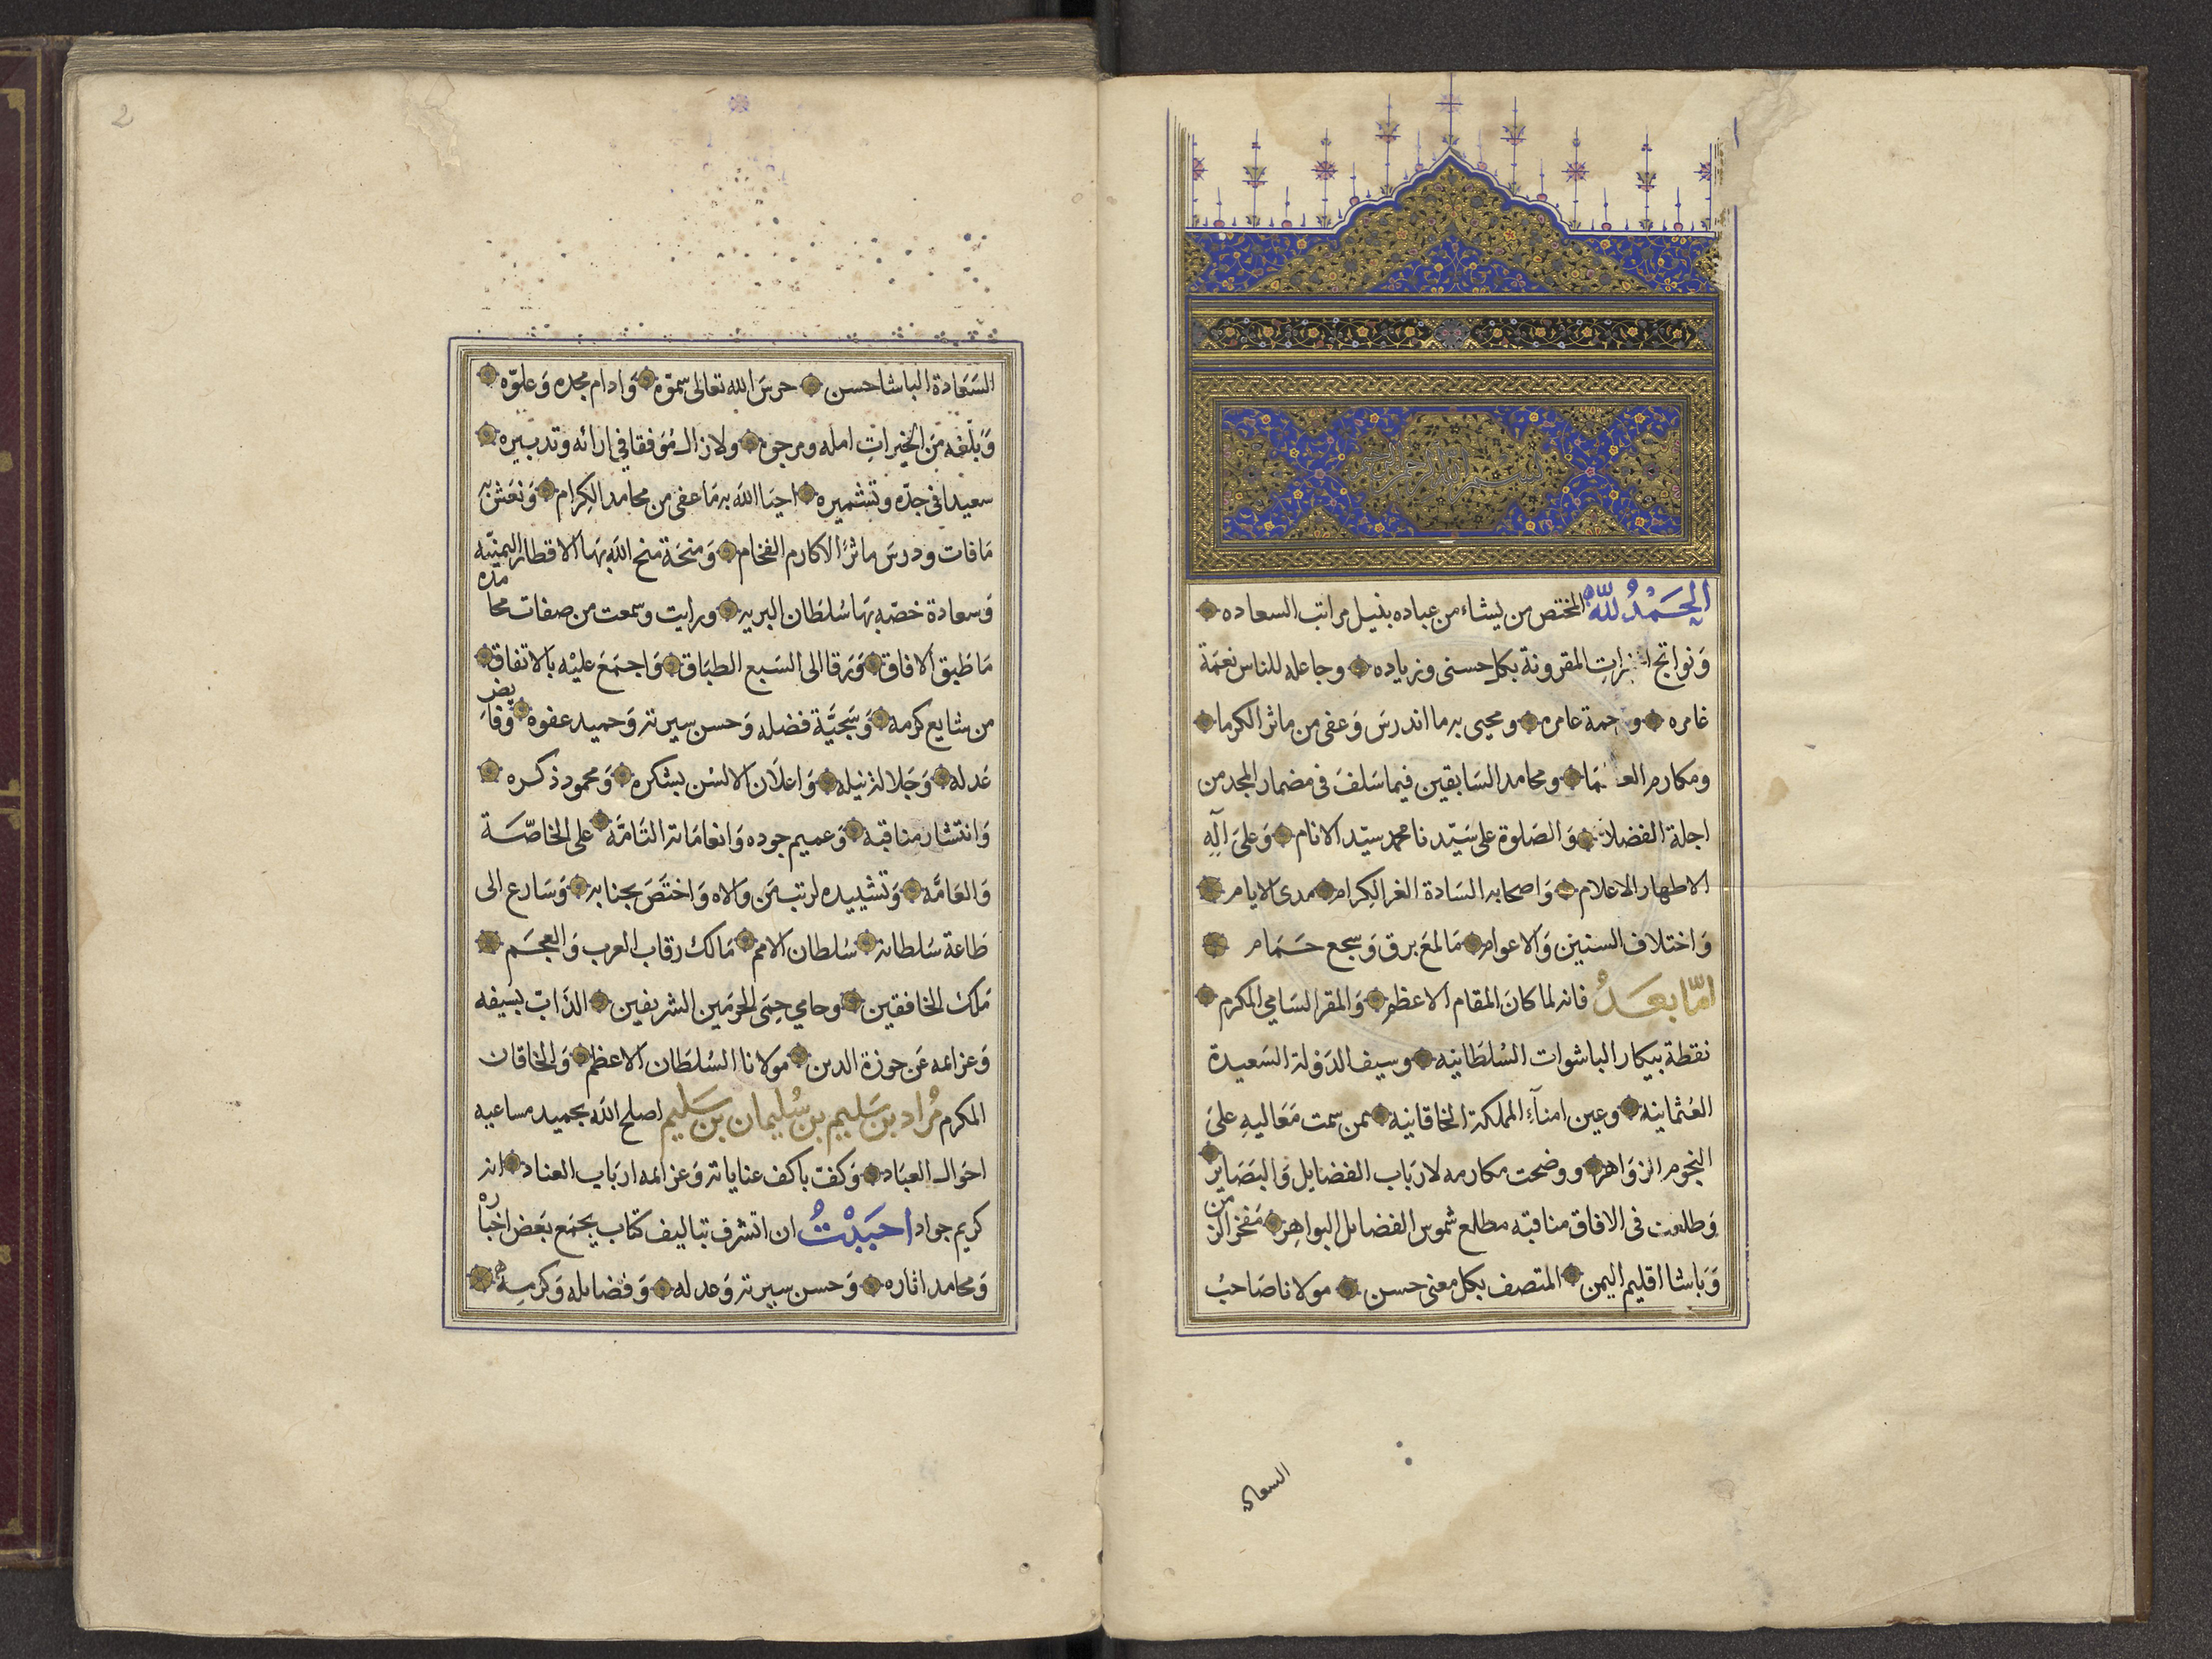 بسم الله الرحمن الرحيم
الحَمْدُ لِلّٰه المختص من يشاء من عباده بنيل مراتب السعاده
وَنواتج المقرونة بكل حسنى وزياده وجاعله للناس نعمَة
غامره ورحمة عامره ومحيى به ما اندرسَ وَعفى من ماثر الكرما
ومكارم العظمَا ومحامد السَابقين فيما سَلفَ فى مضمار المجد من
اجلة الفضلا وَالصَلوة على سَيّدنا محمد سيّد الانام وَعلىَ آلِهِ
الاطهار الاعلام وَاصحابه السَادة الغر الكِرام مدى الايام
وَاختلاف السنين وَالاعوام مَا لمعَ برق وَسجع حَمَام
امّا بعَدُ فانه لما كانَ المقام الاعظم وَالمقر السَامي المكرم
نقطة بيكار الباشوات السُلطَانيه وسيف الدَولة السَعيدة
العُثمانيه وعين امنآءِ المملكة الخاقانيه من سمت مَعَاليهِ علىَ
النجوم الزوَاهر ووضحت مكارمه لارَباب الفضايل وَالبَصَاير
وَطلعت فى الافاق مناقبه مطلع شموس الفضايل البواهِر مَفخر الزمن
وَبَاشا اقليم اليمن المتصف بكل معنى حسن مولانا صَاحبُ
السعاده
2
السَعَادة الباشا حسن حرسَ الله تعالى سموّه وَادام مجده وَعلوّه
وَبلّغه منَ الخيراتِ امله ومرجوه ولازال مُوَفقا فى ارائه وتدبيره
سعيدا فى جدّه وتشميره احيَا الله به مَا عفى من محامد الكِرام وَنعَش به
مَا فات ودرسَ ماثرُ الاكارم الفخام وَمنحَة منح الله بهَا الاقطار اليمنيّه
وَسعادة خصّه بهَا سُلطَان البريه ورايت وسمعت من صفات محامده
مَا طَبق الافاق وَرَقا الى السَبع الطبَاق وَاجمَعَ عليْه بالاتفاق
من شايع كرمه وَسَجيَّة فضله وَحسن سيرته وَحميد عفوه وَفايض
عَدله وَجَلالة نيله وَاعلاَن الالسُن بشكره وَمحمود ذكره
وَانتشار مناقبه وَعميم جوده وَانعامَاته التَامَّه على الخاصّة
وَالعَامَّه وَتشييده لرتب مَن وَالاه وَاختَصَ بجنابه وَسَارع الى
طَاعة سُلطانه سُلطان الامم مَالك رقاب العرب وَالعجَم
مَلك الخافقين وحامي حِمَى الحرمَين الشريفين الذَابّ بسيفه
وَعزائمه عَن حوزة الدين مولانا السُلطَان الاعظم وَالخاقان
المكرم مُراد بن سَليم بن سُليمان بن سَليم اصلح الله بحميد مساعيه
احَوال العبَاد وَكفت باكف عناياته وَعزائمه ارَباب العناد انه
كريم جواد احبَبْتُ ان اتشرف بتاليف كتاب يجمَع بَعض اخباره
وَمحامد اثاره وَحسن سيرته وَعدله وَفضايله وَكرمِه